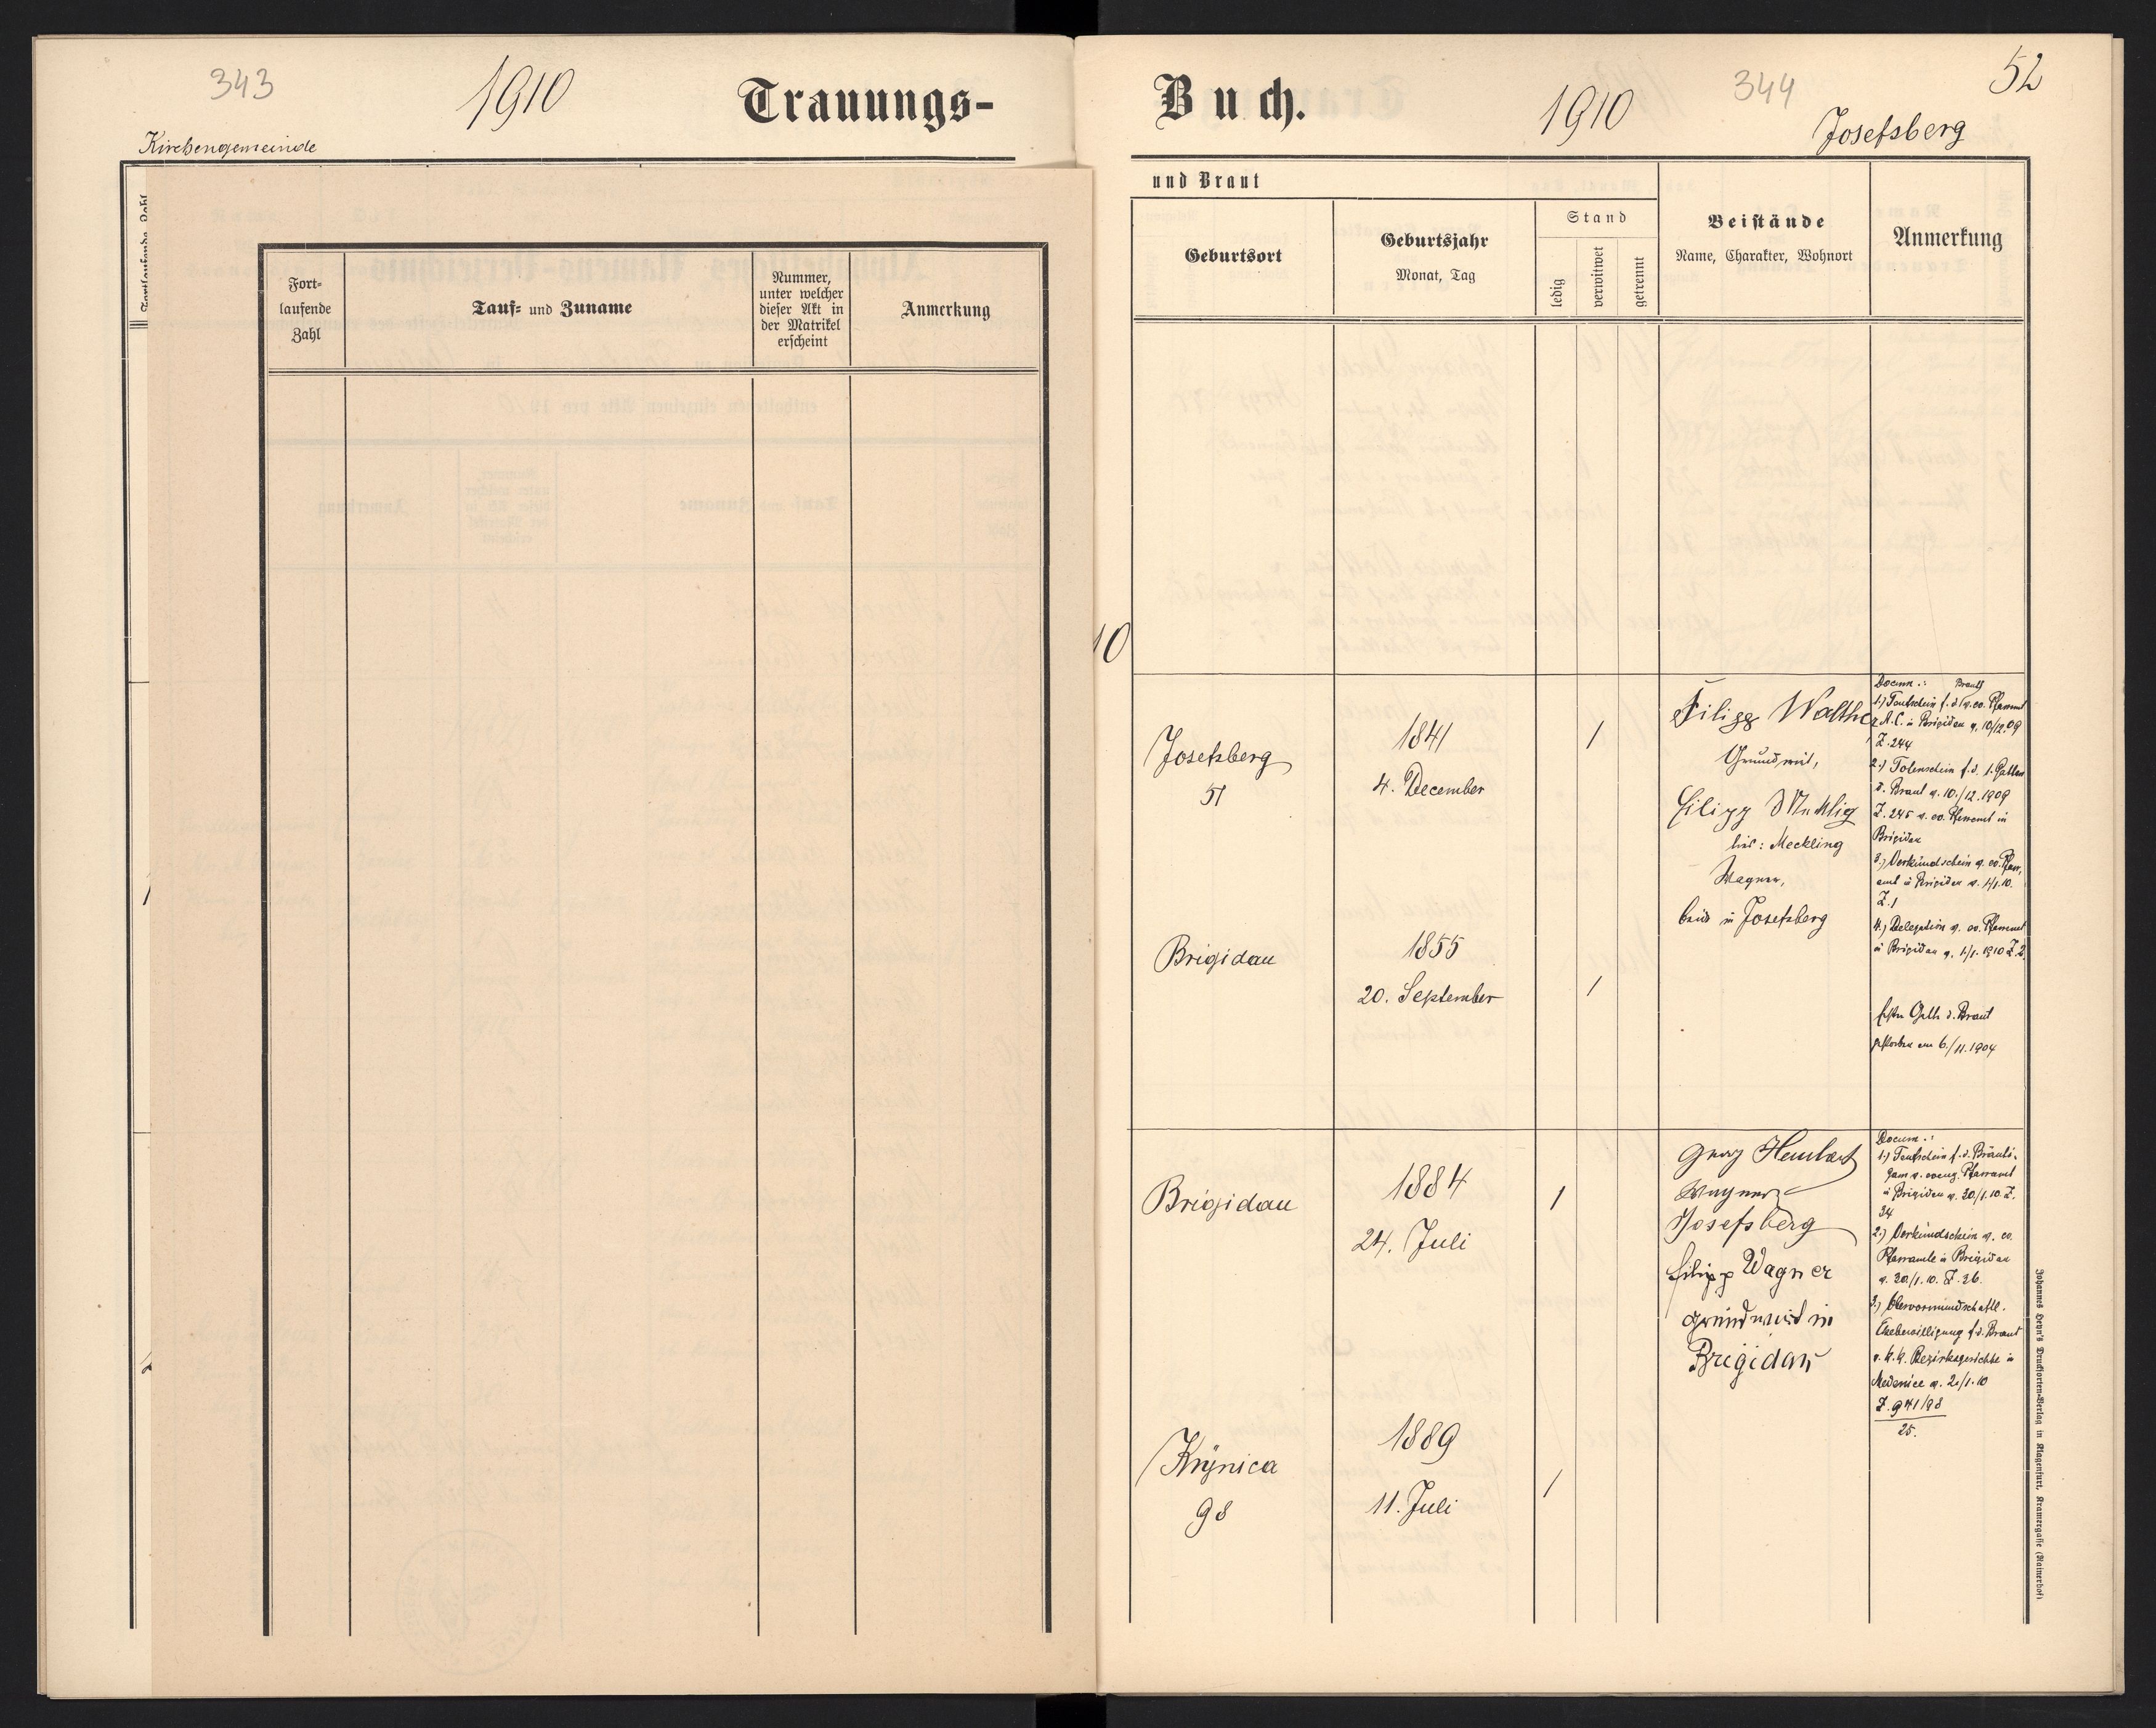 343
1910
Trauungs-
Kirchengemeinde
Fortlaufende Zahl
Fort-
laufende
Zahl
Tauf- und Zuname
Nummer,
unter welcher
dieser Akt in
der Matrikel
erscheint
Anmerkung
Buch.
1910
344
52
Josefsberg
und Braut
Geburtsort
Geburtsjahr
Monat, Tag
Stand
ledig
verwitwet
getrennt
Beistände
Name, Charakter, Wohnort
Anmerkung
10
Josefsberg
51
1841
4. December
/
Filipp Walther
Grundwirt,
Filipp
hies: Meckling
Wagner,
beide in Josefsberg
Docum.: Braut
1.) Taufschein f. d. v. ev. Pfarramt
A. C. in Brigidau v. 10/12.09
Z. 244
2.) Totenschein f. d. 1. Gatten
d. Braut v. 10./12.1909
Z. 245 v. ev. Pfarramt in
Brigidau
3.) Verkündschein v. ev. Pfarr-
amt in Brigidau v. 1/1.10.
Z. 1
4.) Delegation v. ev. Pfarramt
in Brigidau v. 1/1. 1910 Z. 2.
Brigidau
1855
20. September
/
d. Braut
gestorben am 6./11.1904
Brigidau
1884
24. Juli
/
Georg
Wagner
Josefsberg
Filipp Wagner
grundwird in
Brigidau
Docum.:
1.) Taufschein f. d. Bräuti-
gam v. evang. Pfarramt
in Brigidau v. 20/1.10. Z.
34
2.) Verkündschein v. ev.
Pfarramte in Brigidau
v. 20/1.10. Z. 26.
3.) Obervormundschaftl.
Ehebewilligung f. d. Braut
v. k. k. Bezirksgerichte in
Medenice v. 2/1.10
Z. 941/98
25.
Krynica
98
1889
11. Juli
/
Johannes Heyn's Drucksorten-Verlag in Klagenfurt, Kramergasse (Rainerhof).